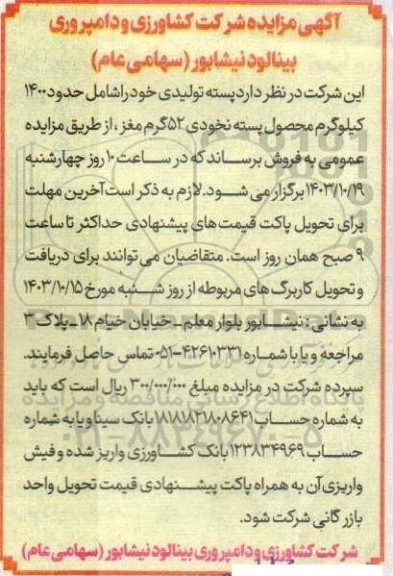 آگهی مزایده شرکت کشاورزی و دامپروری
بینالود نیشابور (سهامی عام)
این شرکت در نظر دارد پسته تولیدی خود را شامل حدود ۱۴۰۰
کیلوگرم محصول پسته نخودی ۵۲گرم مغز ، از طریق مزایده
عمومی به فروش برساند که در ساعت ۱۰ روز چهارشنبه
۱۴۰۳/۱۰/۱۹ برگزار می شود. لازم به ذکر است آخرین مهلت
برای تحویل پاکت قیمت های پیشنهادی حداکثر تا ساعت
۹ صبح همان روز است. متقاضیان می توانند برای دریافت
و تحویل کاربرگ های مربوطه از روز شنبه مورخ ۱۴۰۳/۱۰/۱۵
به نشانی : نیشابور بلوار معلم ـ خیابان خیام ۱۸ ـ پلاک ۳
مراجعه و یا با شماره ۴۲۶۱۰۳۳۱-۰۵۱ تماس حاصل فرمایند.
سپرده شرکت در مزایده مبلغ ۳۰۰/۰۰۰/۰۰۰ ریال است که باید
به شماره حساب ۱۱۸۱۸۲۱۸۰۸۶۴۱ بانک سینا و یا به شماره
حساب ۱۲۳۸۳۴۹۶۹ بانک کشاورزی واریز شده و فیش
واریزی آن به همراه پاکت پیشنهادی قیمت تحویل واحد
بازرگانی شرکت شود.
شرکت کشاورزی و دامپروری بینالود نیشابور (سهامی عام)